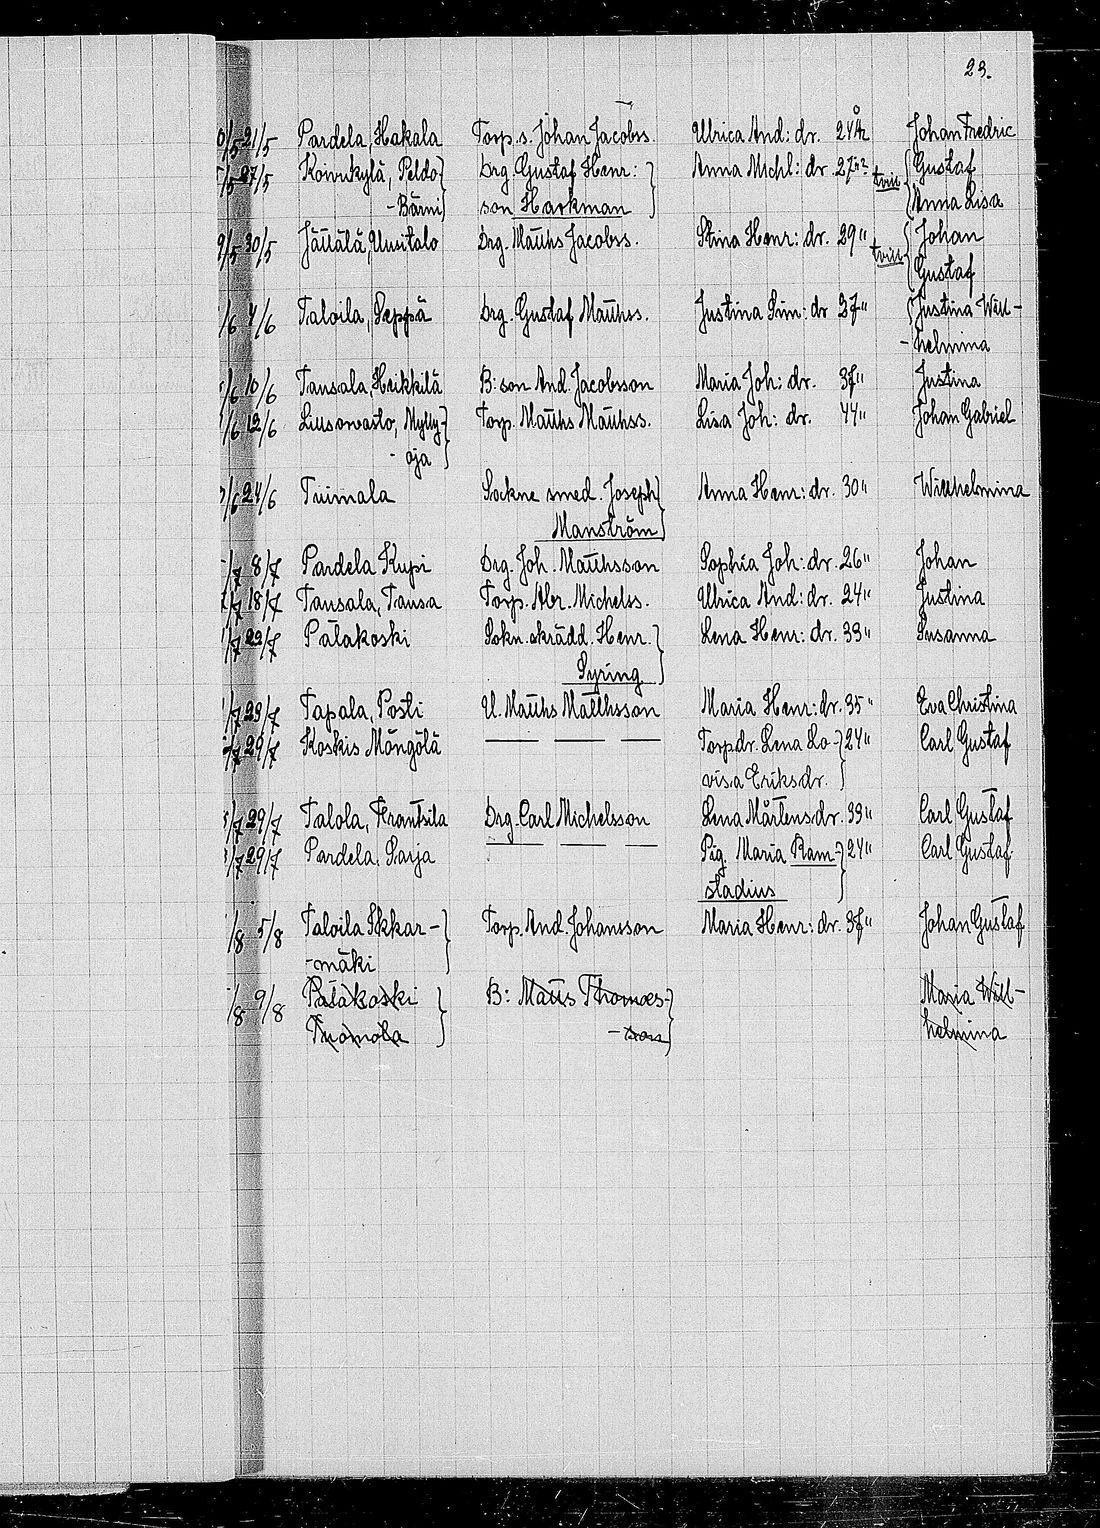 23.
21/5 Pardela, Hakala Torp. s. Johan Jacobss. Ulrica And: dr. 24 År Johan Fredric
27/5 Koivukylä, Peldo Drg. Gustaf Henr: Anna Michl: dr. 27 " tvill Gustaf
- Bärni son Harkman Anna Lisa
30/5 Jättälä, Uusitalo Drg. Matths Jacobss. Stina Henr: dr. 29 " tvill Johan
Gustaf
4/6 Taloila, Seppä Drg. Gustaf Matthss. Justina Sim: dr 37 " Justina Will-
- helmina
10/6 Tansala, Heikkilä B: son And. Jacobsson Maria Joh: dr. 37 " Justina
12/6 Liusowasto, Mylly- Torp. Matths Matthss. Lisa Joh: dr. 44 " Johan Gabriel
- oja
24/6 Tuimala Sockne smed. Joseph Anna Henr: dr. 30 " Willhelmina
Manström
8/7 Pardela Kupi Drg. Joh. Matthsson Sophia Joh: dr. 26 " Johan
18/7 Tansala, Tansa Torp. Abr. Michelss. Ulrica And: dr. 24 " Justina
22/7 Pälakoski Sokn. skrädd. Henr. Lena Henr: dr. 33 " Susanna
Syring
29/7 Tapala, Posti U. Matths Matthsson Maria Henr: dr. 35 " Eva Christina
29/7 Koskis Möngölä — — — Torpdr. Lena Lo- 24 " Carl Gustaf
visa Eriksdr.
29/7 Talola, Frantsila Drg. Carl Michelsson Lena Mårtensdr. 33 " Carl Gustaf
29/7 Pardela, Sarja — — — Pig. Maria Ram- 24 " Carl Gustaf
stadius
5/8 Taloila Ikkar- Torp. And. Johansson Maria Henr: dr. 37 " Johan Gustaf
- mäki
9/8 Pälakoski B: Matts Thomas- Maria Will-
Tuomola - son helmina